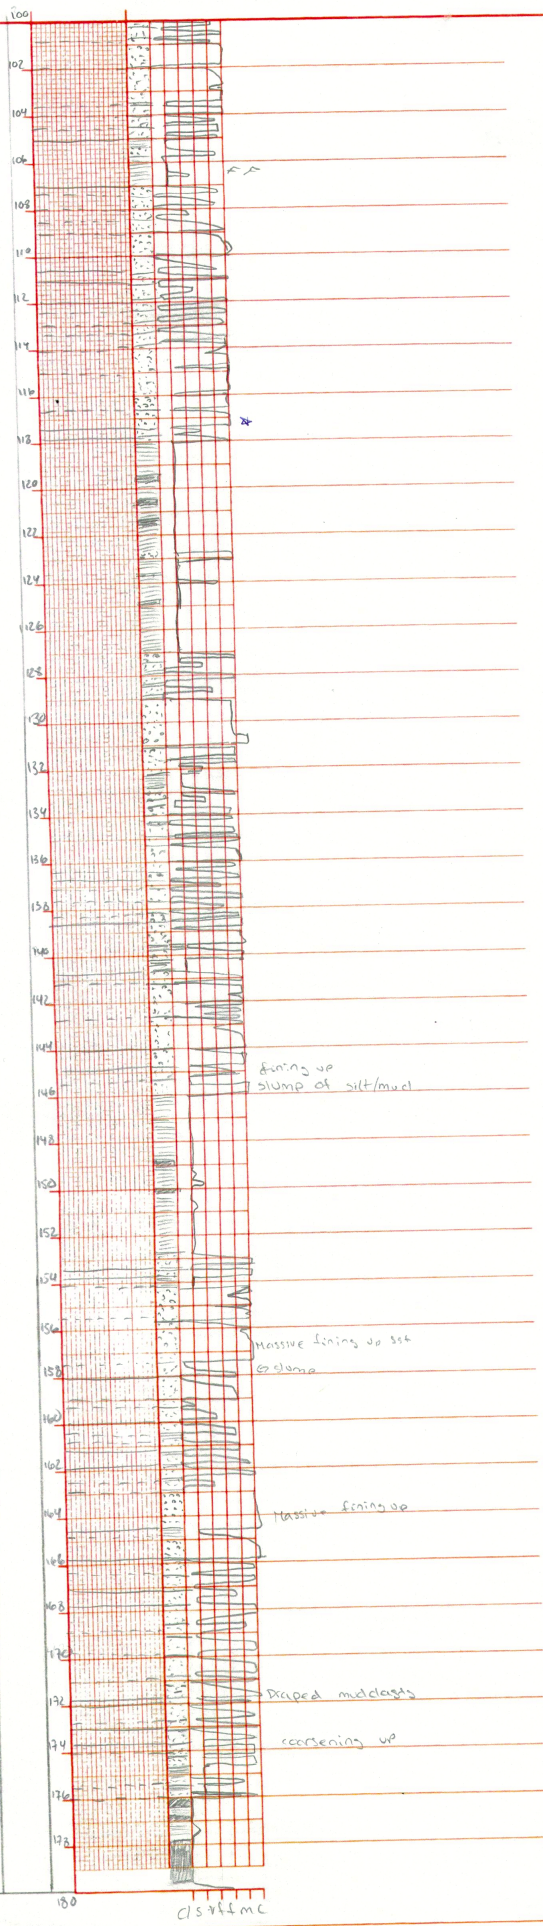 100
102
104
106
F F
108
110
112
114
116
118
120
122
124
126
128
130
132
134
136
138
140
142
144
fining up
slump of silt/mud
146
148
150
152
154
156
Massive fining up sst
slump
158
160
162
164
Massive fining up
166
168
170
172
Draped mudclasts
174
coarsening up
176
178
180
cl s vf f m c